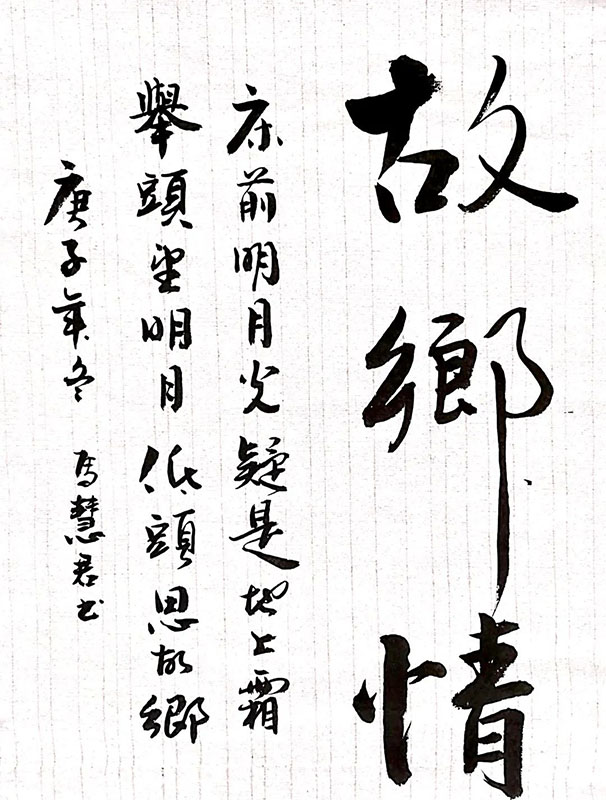 故鄉情
床前明月光疑是地上霜
舉頭望明月低頭思故鄉
庚子年冬 馮慧君书